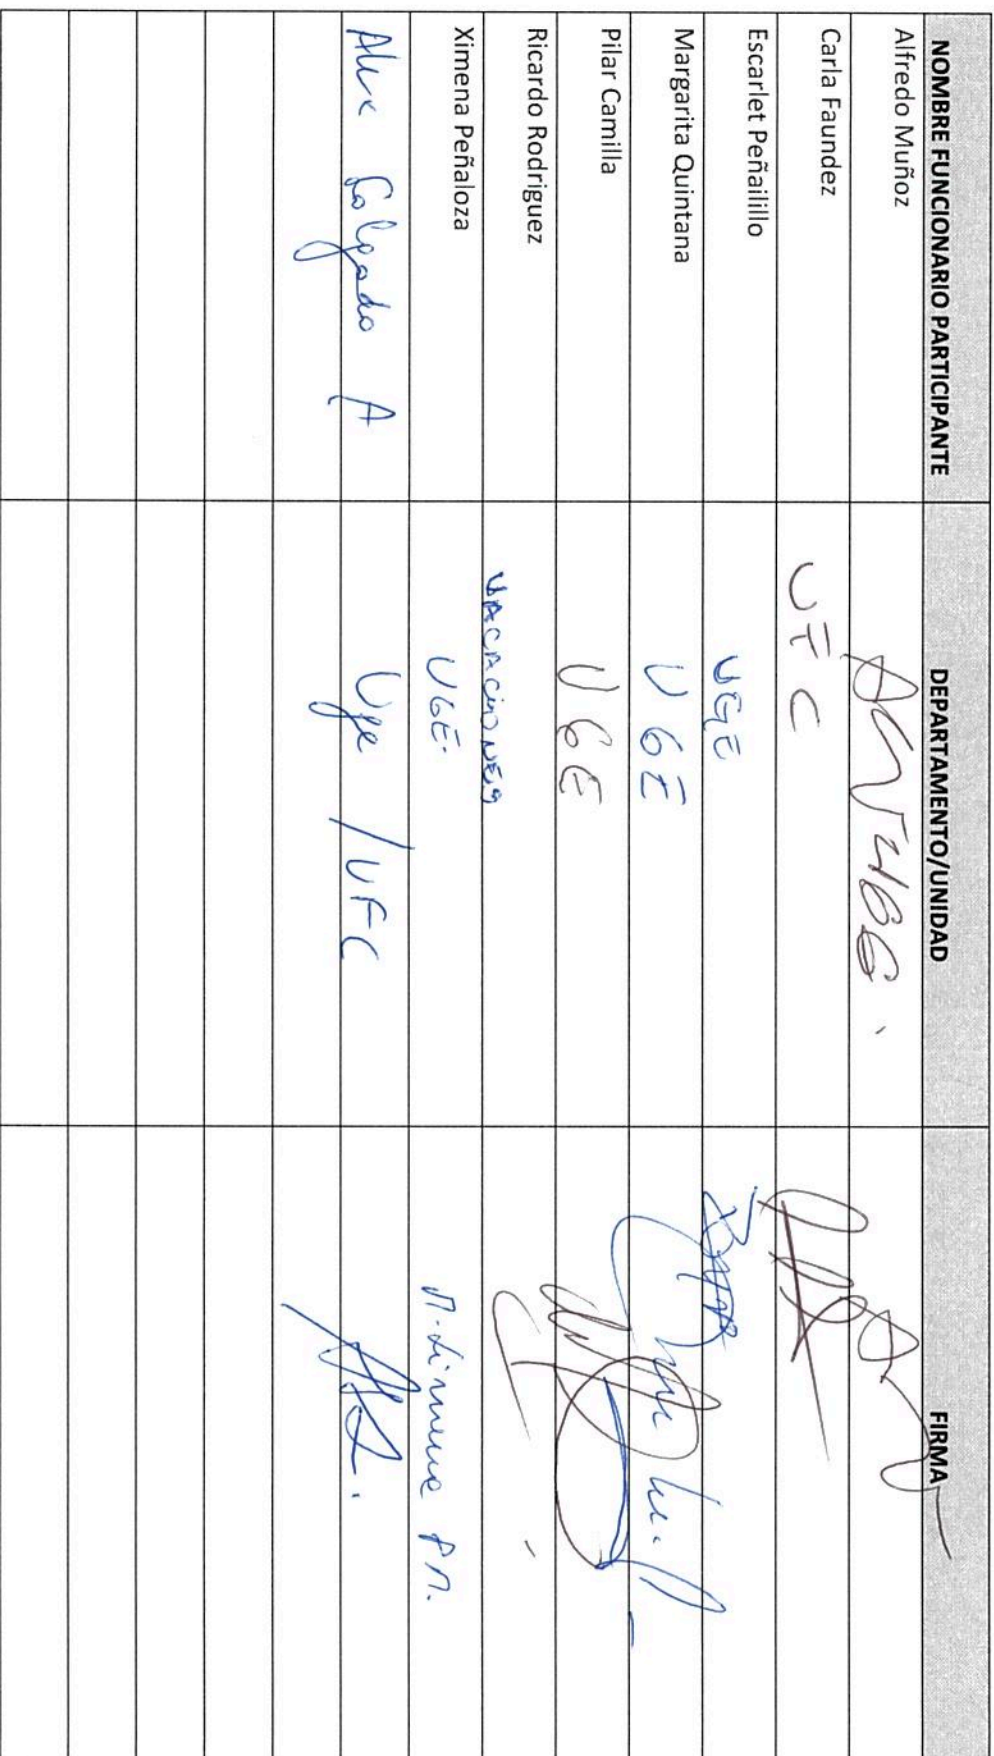 NOMBRE FUNCIONARIO PARTICIPANTE DEPARTAMENTO/UNIDAD FIRMA
Alfredo Muñoz
Carla Faundez UFC
Escarlet Peñailillo UGE
Margarita Quintana UGE
Pilar Camilla UGE
Ricardo Rodriguez VACACIONES
Ximena Peñaloza UGE.
Alex A Uge / UFC